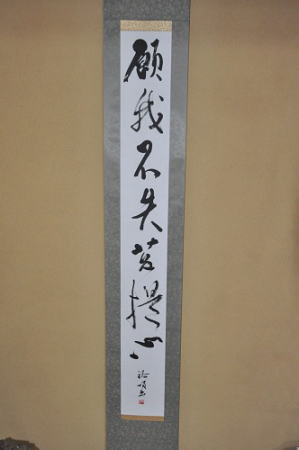 願我不失菩提心